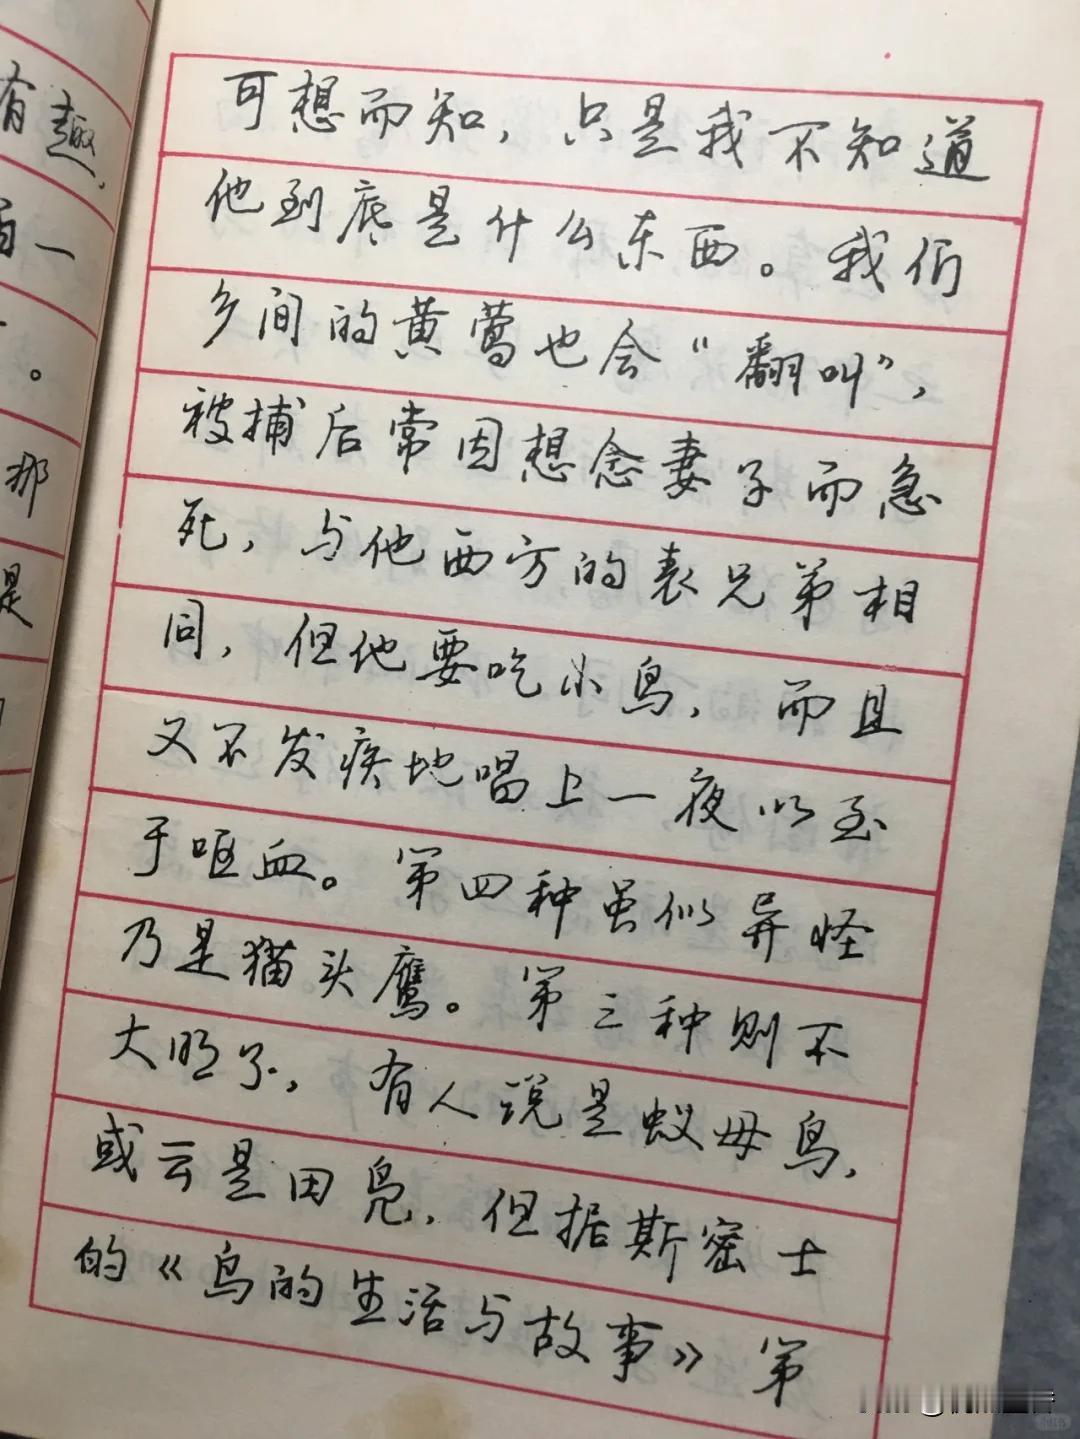 有趣，
一
。
那
是
可想而知，只是我不知道
他到底是什么东西。我们
乡间的黄莺也会“翻叫”，
被捕后常因想念妻子而急
死，与他西方的表兄弟相
同，但他要吃小鸟，而且
又不发痰地唱上一夜以至
于呕血。第四种虽似异怪
乃是猫头鹰。第三种则不
大明了，有人说是蚁母鸟，
或云是田凫，但据斯密士
的《鸟的生活与故事》第